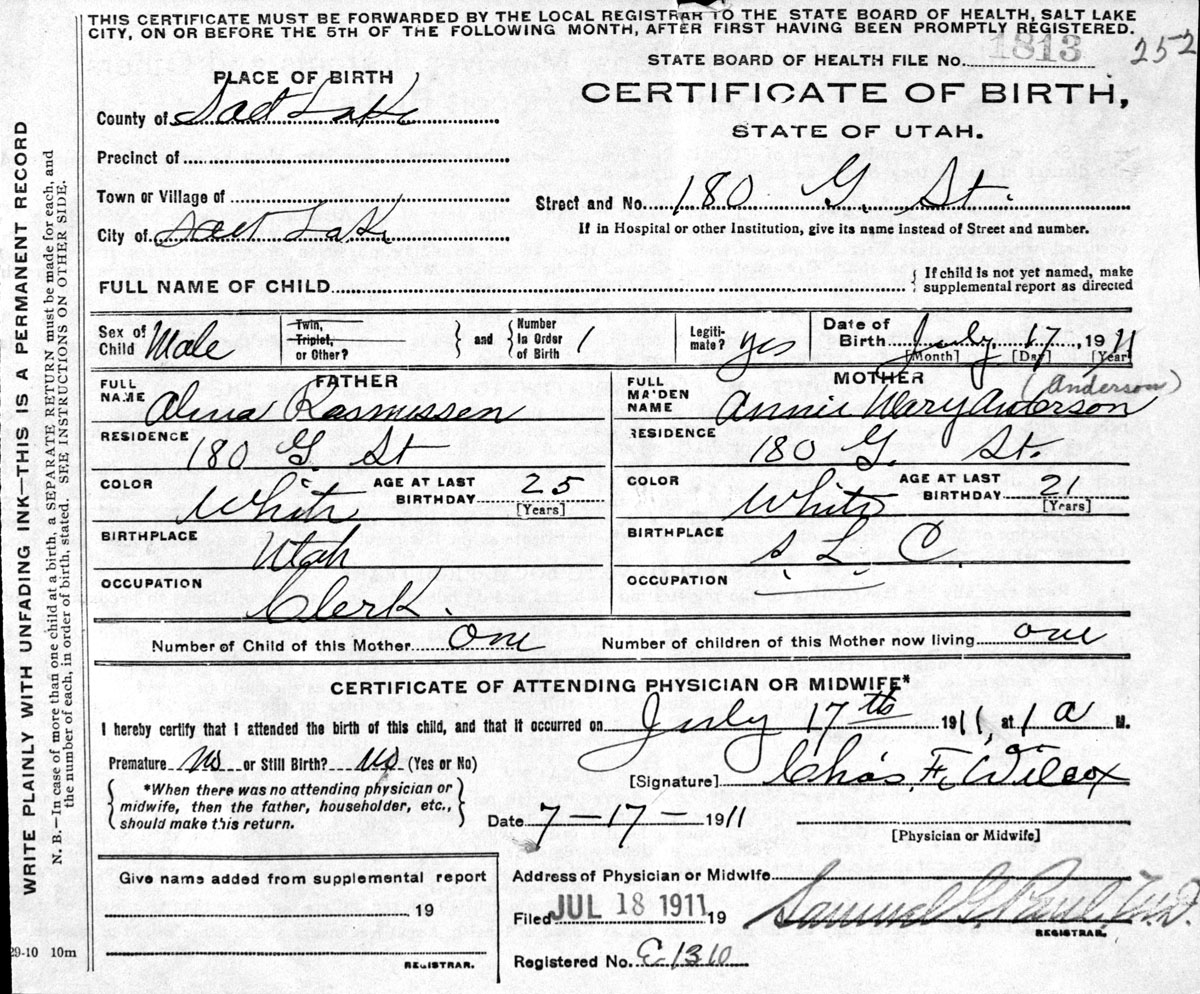 THIS CERTIFICATE MUST BE FORWARDED BY THE LOCAL REGISTRAR TO THE STATE BOARD OF HEALTH, SALT LAKE
CITY, ON OR BEFORE THE 5TH OF THE FOLLOWING MONTH, AFTER FIRST HAVING BEEN PROMPTLY REGISTERED.
STATE BOARD OF HEALTH FILE No. 1813 252
PLACE OF BIRTH
CERTIFICATE OF BIRTH,
County of Salt Lake
STATE OF UTAH.
Precinct of
Town or Village of
Street and No. 180 G. St.
City of Salt Lake
If in Hospital or other Institution, give its name instead of Street and number.
FULL NAME OF CHILD
{ If child is not yet named, make
supplemental report as directed
Sex of Child Male
Twin, Triplet, or Other?
} and { Number In Order of Birth 1
Legiti-mate? yes
Date of Birth July 17, 1911
[Month] [Day] [Year]
FATHER
FULL NAME Alma Rasmussen
RESIDENCE 180 G. St
COLOR White AGE AT LAST BIRTHDAY 25 [Years]
BIRTHPLACE Utah
OCCUPATION Clerk.
MOTHER (Anderson)
FULL MAIDEN NAME Annie Mary Anderson
RESIDENCE 180 G. St.
COLOR White AGE AT LAST BIRTHDAY 21 [Years]
BIRTHPLACE S. L. C.
OCCUPATION
Number of Child of this Mother One Number of children of this Mother now living one
CERTIFICATE OF ATTENDING PHYSICIAN OR MIDWIFE*
I hereby certify that I attended the birth of this child, and that it occurred on July 17th 1911, at 1 a M.
Premature No or Still Birth? No (Yes or No)
[Signature] Chas. F. Wilcox
{ *When there was no attending physician or
midwife, then the father, householder, etc.,
should make this return. }
Date 7-17-1911
[Physician or Midwife]
Give name added from supplemental report
19
REGISTRAR.
Address of Physician or Midwife
Filed JUL 18 1911 19 Samuel G. Paul, M.D.
REGISTRAR.
Registered No. C-1310
29-10 10m
WRITE PLAINLY WITH UNFADING INK—THIS IS A PERMANENT RECORD
N. B.—In case of more than one child at a birth, a SEPARATE RETURN must be made for each, and
the number of each, in order of birth, stated. SEE INSTRUCTIONS ON OTHER SIDE.